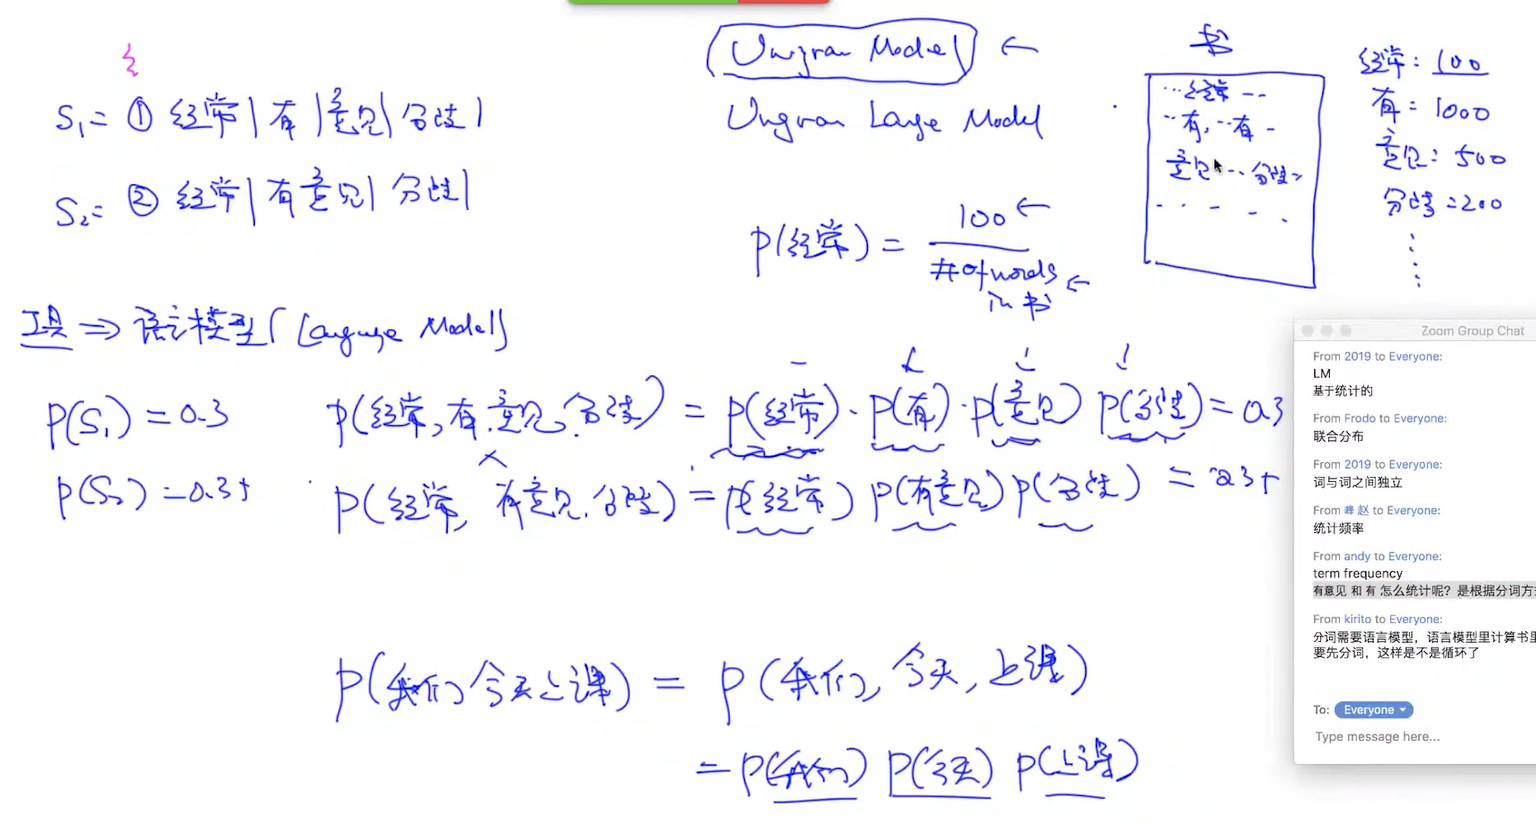 S₁= ① 经常|有|意见|分歧|
S₂= ② 经常|有意见|分歧|
工具 ⇒ 语言模型 (Language Model)
P(S₁) = 0.3
P(S₂) = 0.35
Unigram Model ←
Unigram Language Model
P(经常) = 100 ← / # of words in 书 ←
书
...经常...
..有,...有-
意见...分歧..
经常: 100
有: 1000
意见: 500
分歧=200
P(经常,有,意见,分歧) = P(经常)·P(有)·P(意见) P(分歧) = 0.3
P(经常, 有意见,分歧) = P(经常) P(有意见) P(分歧) = 0.35
P(我们今天上课) = P(我们, 今天, 上课)
= P(我们) P(今天) P(上课)
Zoom Group Chat
From 2019 to Everyone:
LM
基于统计的
From Frodo to Everyone:
联合分布
From 2019 to Everyone:
词与词之间独立
From 峰 赵 to Everyone:
统计频率
From andy to Everyone:
term frequency
有意见 和 有 怎么统计呢？是根据分词方
From kirito to Everyone:
分词需要语言模型，语言模型里计算书里
要先分词，这样是不是循环了
To: Everyone
Type message here...